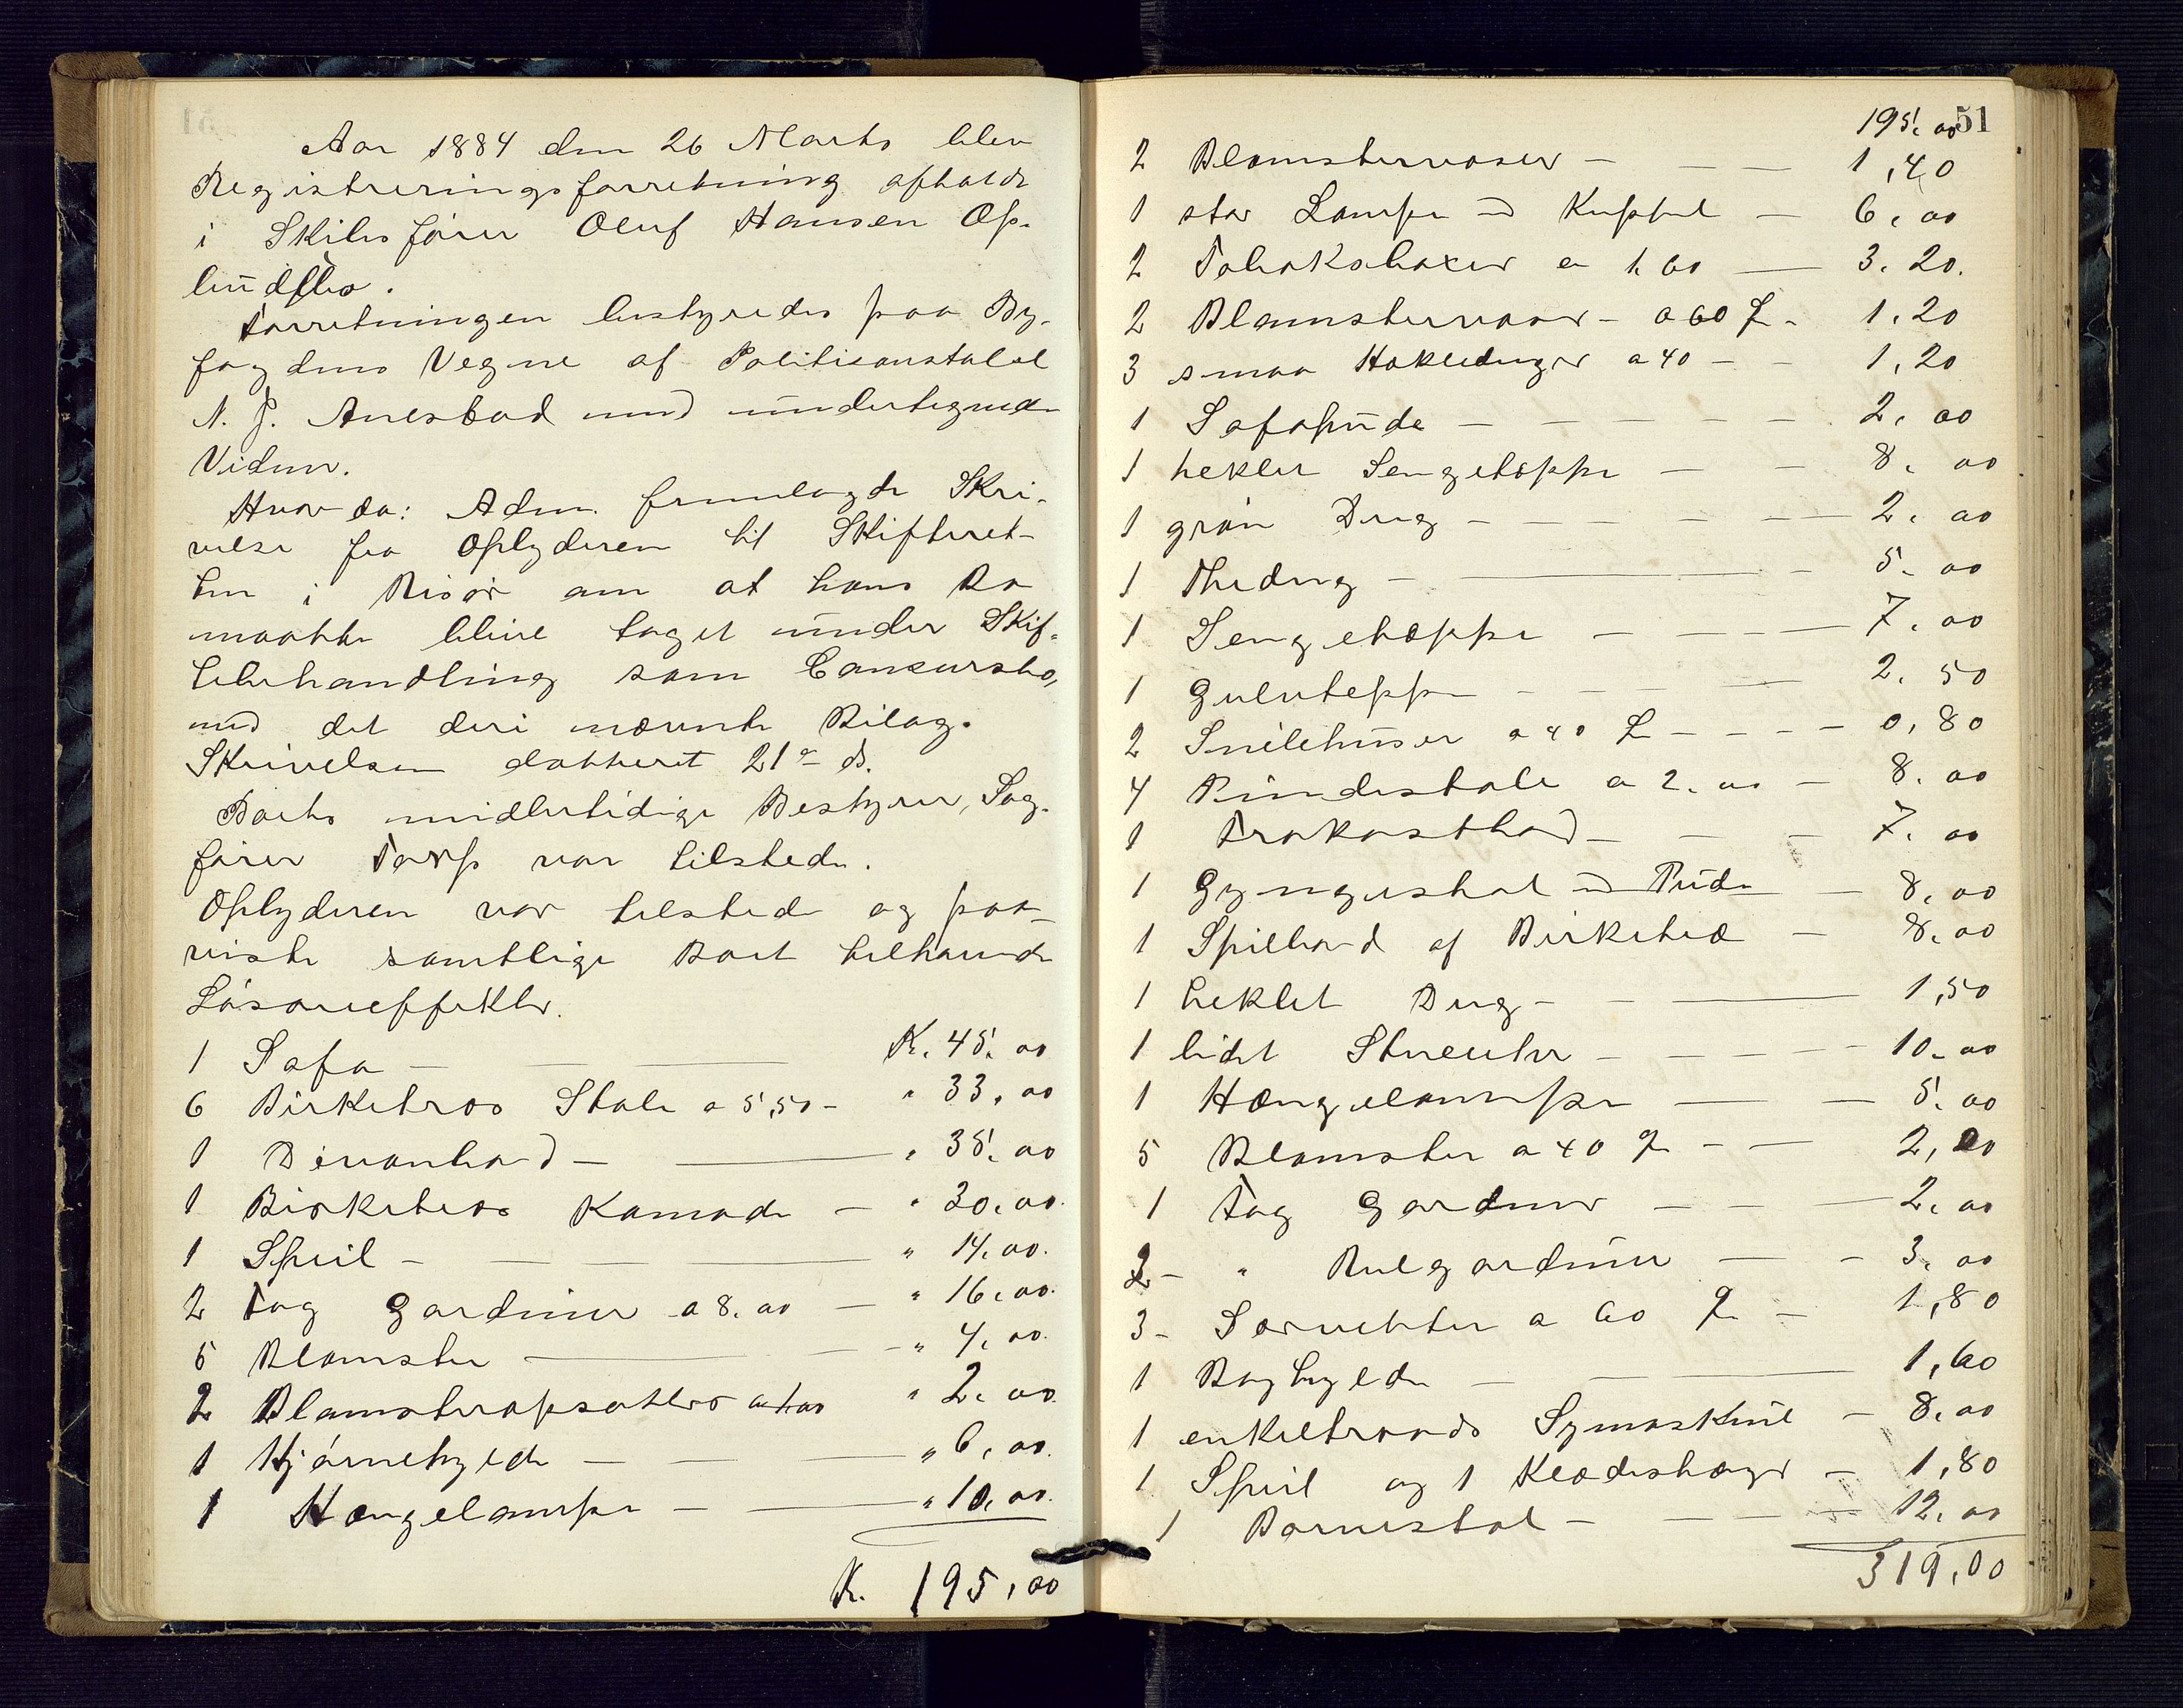 Aar 1884 den 26 Marts blev
Registreringsforretning afholdt
i Skibsfører Oluf Hansen Op-
budsbo.
Forretningen bestyredes paa By-
fogdens Vegne af Politikonstabel
N. J. Anesbad med undertegnede
Vidner.
Hvor da: Adm. fremlagde Skri-
velse fra Opbyderen til Skifteret-
ten i Risør om at hans Bo
maatte blive taget under Skif-
tebehandling som Concursbo,
med det deri nævnte Bilag.
Skrivelsen datteret 21de ds.
Boets midlertidige Bestyrer, Sag-
fører Torp var tilstede.
Opbyderen var tilstede og paa-
viste samtlige Boet tilhørende
Løsøreeffekter.
1 Sofa — K. 45,00
6 Birketræs Stole a 5,50 - " 33,00
1 Divanbord — " 35,00
1 Birketræs Komode — " 30,00
1 Speil — " 14,00
2 Fag Gardiner a 8,00 — " 16,00
5 Blomster — " 4,00
2 Blomsteropsatser a 1,00 " 2,00
1 Hjørnehylde — " 6,00
1 Hængelampe — " 10,00
K. 195,00
51
195,00
2 Blomstervaser — 1,40
1 stor Lampe md Kuppel — 6,00
2 Tobaksbaxer a 1,60 — 3,20
2 Blomstervaser - a 60 Ø - 1,20
3 smaa Hækleduger a 40 - 1,20
1 Sofapude — 2,00
1 heklet Sengetæppe — 8,00
1 grøn Dug — 2,00
1 Thedug — 5,00
1 Sengetæppe — 7,00
1 Gulvteppe — 2,50
2 Sneilehuser a 40 Ø — 0,80
4 Pindestole a 2,00 — 8,00
1 Frokostbord — 7,00
1 Gyngestol md Pude — 8,00
1 Spillebord af Birketræ — 8,00
1 heklet Dug — 1,50
1 lidet Stueuhr — 10,00
1 Hængelampe — 5,00
5 Blomster a 40 Ø — 2,00
1 Fag Gardiner — 2,00
2 - " Rulgardiner — 3,00
3 - Servietter a 60 Ø — 1,80
1 Boghylde — 1,60
1 enkeltraads Symaskine — 8,00
1 Speil og 1 Klædeshænger — 1,80
1 Barnestol — 12,00
319,00